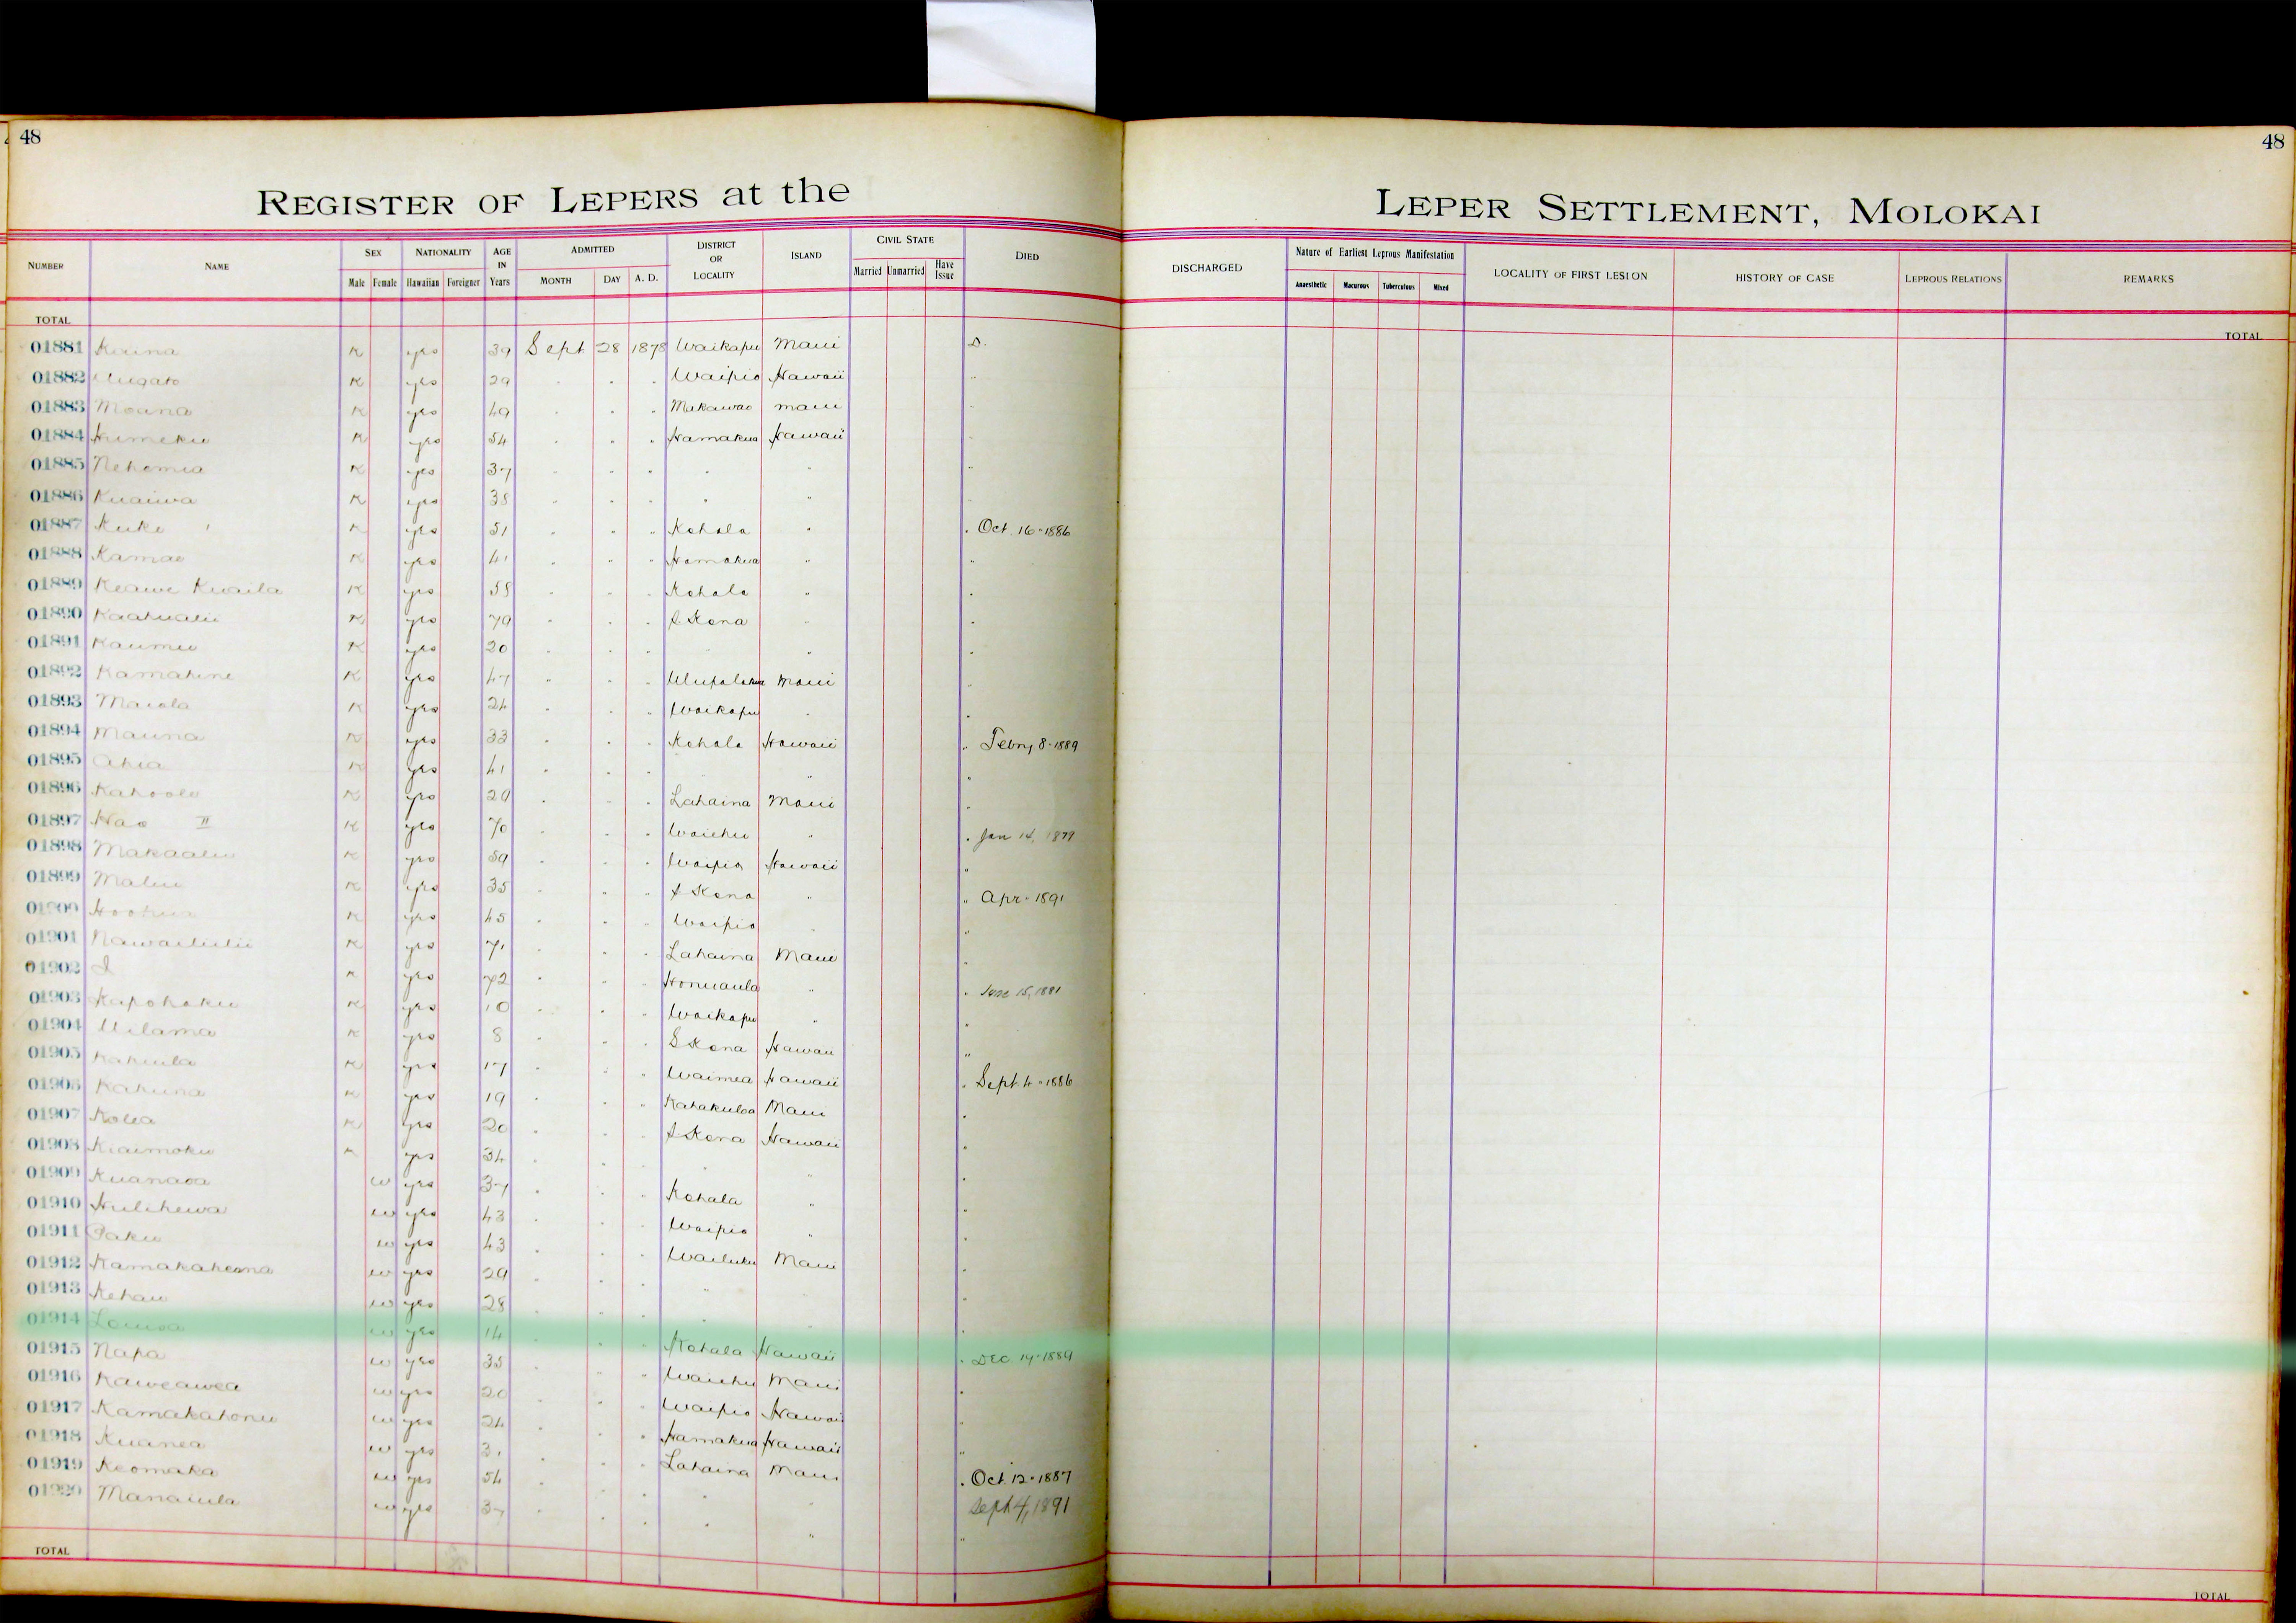 48
48
REGISTER OF LEPERS at the
LEPER SETTLEMENT, MOLOKAI
NUMBER NAME SEX Male Female NATIONALITY Hawaiian Foreigner AGE IN Years ADMITTED MONTH DAY A. D. DISTRICT OR LOCALITY ISLAND CIVIL STATE Married Unmarried Have Issue DIED
DISCHARGED Nature of Earliest Leprous Manifestation Anaesthetic Macurous Tuberculous Mixed LOCALITY OF FIRST LESION HISTORY OF CASE LEPROUS RELATIONS REMARKS
TOTAL
TOTAL
01881 K yes 39 Sept 28 1878 Waikapu Maui D.
01882 K yes 29 " " " Waipio Hawaii "
01883 Moana K yes 49 " " " Makawao Maui "
01884 Humeku K yes 54 " " " Hamakua Hawaii "
01885 Nehemia K yes 37 " " " " " "
01886 Kuaiwa K yes 38 " " " " " "
01887 Kuke K yes 51 " " " Kohala " " Oct. 16 - 1886
01888 Kamao K yes 41 " " " Hamakua " "
01889 Keawe Kuaila K yes 58 " " " Kohala " "
01890 Kaahualii K yes 79 " " " S Kona " "
01891 Kaumu K yes 20 " " " " " "
01892 Kamahine K yes 47 " " " Ulupalakua Maui "
01893 Maiola K yes 24 " " " Waikapu " "
01894 Mauna K yes 33 " " " Kohala Hawaii " Febry 8 - 1889
01895 Ahia K yes 41 " " " " " "
01896 Kahoole K yes 29 " " " Lahaina Maui "
01897 Hao II K yes 70 " " " Waiehu " " Jan 14, 1879
01898 Makaalu K yes 59 " " " Waipio Hawaii "
01899 Malui K yes 35 " " " S Kona " " Apr - 1891
01900 Hoohua K yes 45 " " " Waipio " "
01901 Nawailiilii K yes 71 " " " Lahaina Maui "
01902 I K yes 72 " " " Honuaula " " June 15, 1881
01903 Kapohaku K yes 10 " " " Waikapu " "
01904 Uilama K yes 8 " " " S Kona Hawaii "
01905 Kahiula K yes 17 " " " Waimea Hawaii " Sept 4 - 1886
01906 Kahuna K yes 19 " " " Kahakuloa Maui "
01907 Kolea K yes 20 " " " S Kona Hawaii "
01908 Kiaimoku K yes 34 " " " " " "
01909 Kuanaoa w yes 37 " " " Kohala " "
01910 Hulihewa w yes 43 " " " Waipio " "
01911 Paku w yes 43 " " " Wailuku Maui "
01912 Kamakaheana w yes 29 " " " " "
01913 Kehau w yes 28 " " " " " "
01914 Louisa w yes 14 " " " Kohala Hawaii " Dec. 14 - 1889
01915 Napa w yes 35 " " " Waiehu Maui "
01916 Kaweawea w yes 20 " " " Waipio Hawaii "
01917 Kamakahonu w yes 24 " " " Hamakua Hawaii "
01918 Kuanea w yes 31 " " " Lahaina Maui " Oct 12 - 1887
01919 Keomaka w yes 54 " " " " " Sept 4, 1891
01920 Manaiula w yes 37 " " " " " "
TOTAL
TOTAL